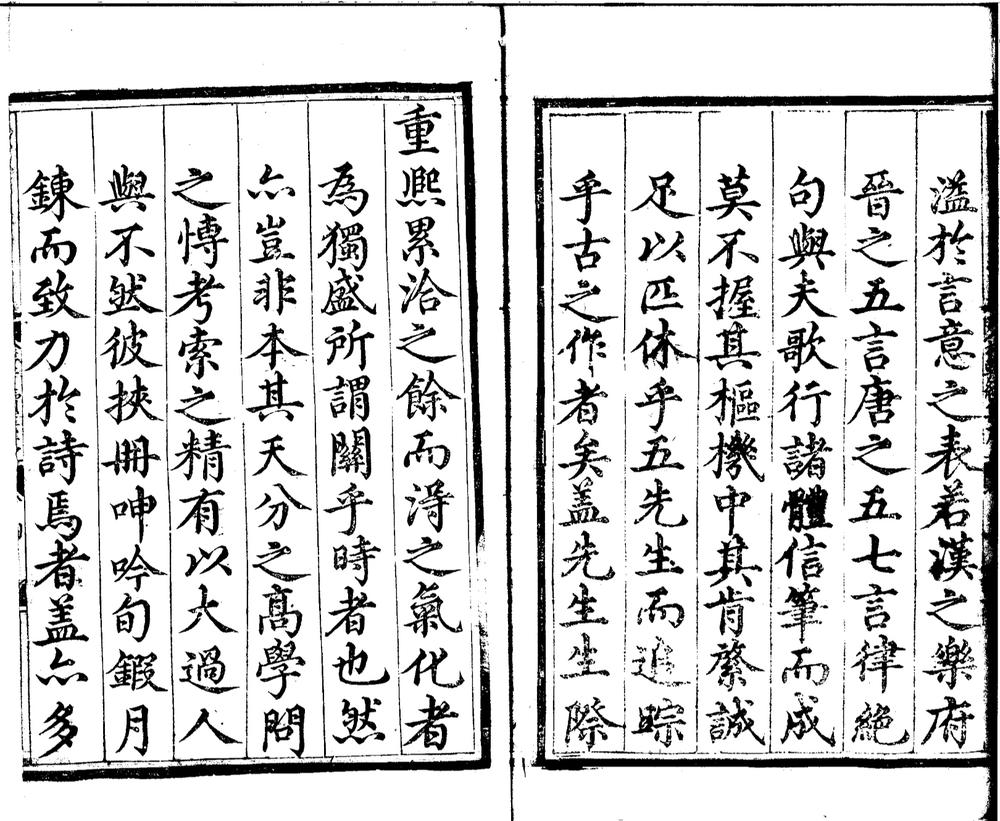 溢於言意之表若漢之樂府
晉之五言唐之五七言律絕
句與夫歌行諸體信筆而成
莫不握其樞機中其肯綮誠
足以匹休乎五先生而追踪
乎古之作者矣盖先生生際
重熙累洽之餘而淂之氣化者
為獨盛所謂關乎時者也然
亦豈非本其天分之髙學問
之愽考索之精有以大過人
與不然彼挾冊呻吟旬鍜月
鍊而致力於詩焉者盖亦多